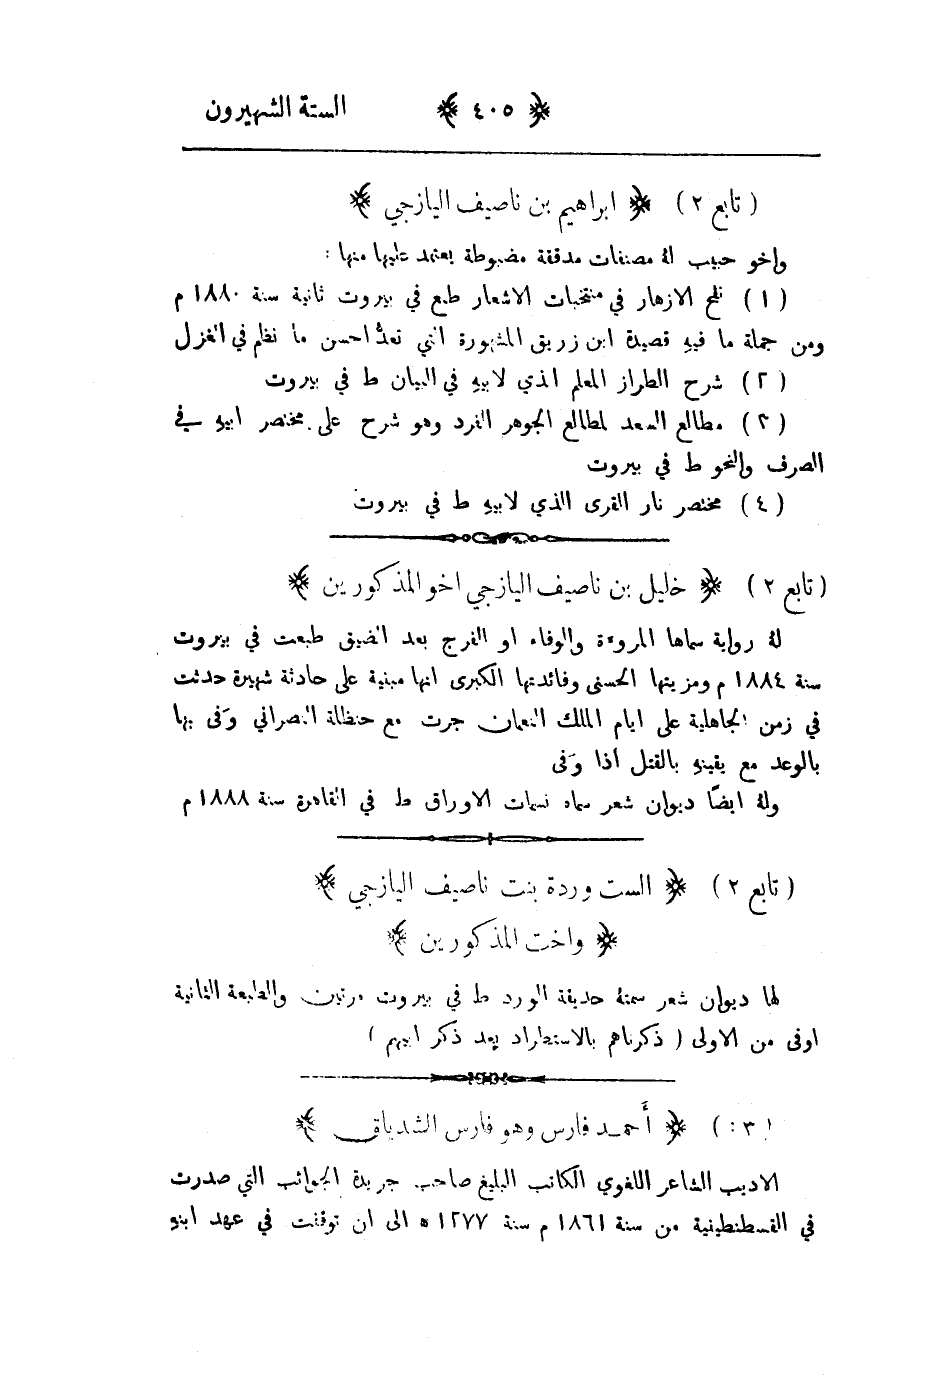 الستة الشهيرون ﴿ ٤٠٥ ﴾
( تابع ٢ ) ﴿ ابراهيم بن ناصيف اليازجي ﴾
واخو حبيب لهُ مصنفات مدققة مضبوطة يعتمد عليها منها :
( ١ ) نفح الازهار في منتخبات الاشعار طبع في بيروت ثانية سنة ١٨٨٠ م
ومن جملة ما فيهِ قصيدة ابن زريق المشهورة التي تعدُّ احسن ما نظم في الغزل
( ٢ ) شرح الطراز المعلم الذي لابيهِ في البيان ط في بيروت
( ٣ ) مطالع السعد لمطالع الجوهر الفرد وهو شرح على مختصر ابيهِ في
الصرف والنحو ط في بيروت
( ٤ ) مختصر نار القرى الذي لابيهِ ط في بيروت
( تابع ٢ ) ﴿ خليل بن ناصيف اليازجي اخو المذكورين ﴾
لهُ رواية سماها المروءة والوفاء او الفرج بعد الضيق طبعت في بيروت
سنة ١٨٨٤ م ومزيتها الحسنى وفائدتها الكبرى انها مبنية على حادثة شهيرة حدثت
في زمن الجاهلية على ايام الملك النعمان جرت مع حنظلة النصراني وَفى بها
بالوعد مع يقينهِ بالقتل اذا وَفى
ولهُ ايضًا ديوان شعر سماه نسمات الاوراق ط في القاهرة سنة ١٨٨٨ م
( تابع ٢ ) ﴿ الست وردة بنت ناصيف اليازجي ﴾
﴿ واخت المذكورين ﴾
لها ديوان شعر سمتهُ حديقة الورد ط في بيروت مرتين والطبعة الثانية
اوفى من الاولى ( ذكرناهم بالاستطراد بعد ذكر ابيهم )
( ٣ : ) ﴿ أحمد فارس وهو فارس الشدياق ﴾
الاديب الشاعر اللغوي الكاتب البليغ صاحب جريدة الجوائب التي صدرت
في القسطنطينية من سنة ١٨٦١ م سنة ١٢٧٧ ه الى ان توقفت في عهد ابنهِ